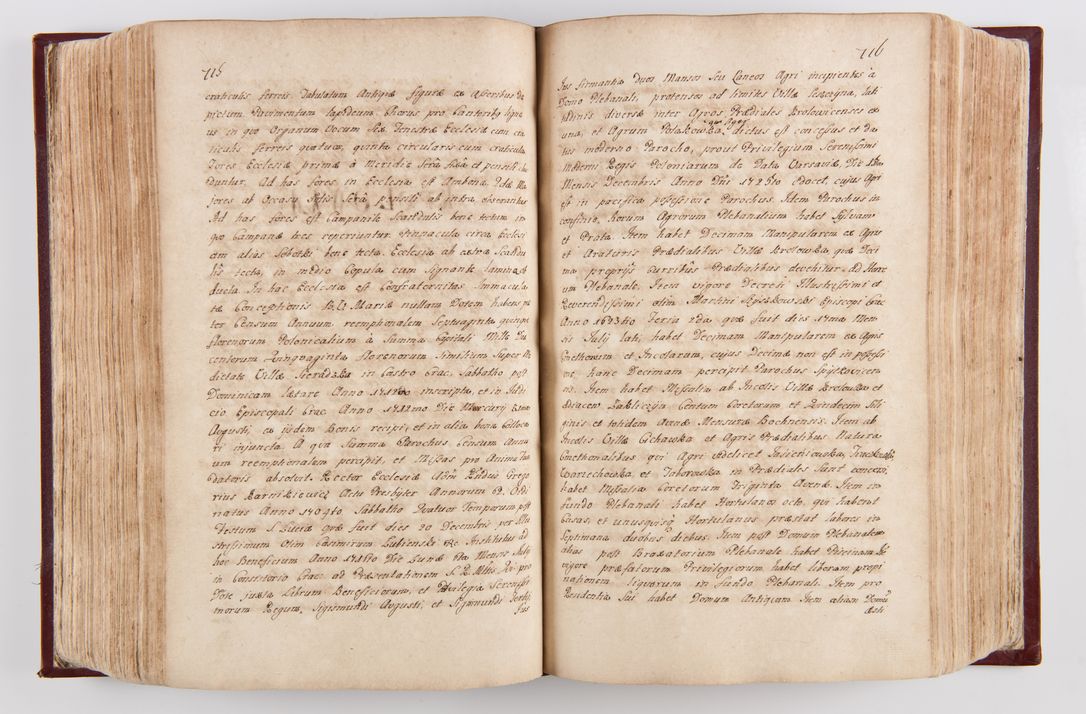 115
craticulis ferreis. Tabulatum Antiqua figura ex asseribus de
pictum. Pavimentum lapideum. Chorus pro Cantoribus ligne
us in quo Organum Vocum Sex. Fenestræ Ecclesiæ cum cra
ticulis ferreis quatuor, quinta circularis cum craticula
Fores Ecclesiæ prima à Meridie Sera fixa et pensili clau
duntur. Ad has fores in Ecclesia est Ambona. 2dæ Ma
jores ab Occasu Solis Sera pensili ab intra obserantur
Ad has fores est Campanile Scandulis bene tectum in
quo Campanæ tres reperiuntur Pinnacula circa Ecclesi
am alias Sobotki bene tecta. Ecclesia ab extra Scandu
lis tecta, in medio Copula cum Signante laminis ob
ducta. In hac Ecclesia est Confraternitas Immacula
tæ Conceptionis B.V. Mariæ nullam Dotem habens præ
ter Censum Annuum reemptionalem Septuaginta quinque
florenorum Polonicalium à Summa Capitali Mille Du
centorum Quinquaginta florenorum Similium Super Præ
dictæ Villæ Sieradzka in Castro Crac. Sabbatho post
Dominicam lætare Anno inscripta, et in Judi
cio Episcopali Crac. Anno Die Mercurij
Augusti, ex ijsdem bonis recipi, et in alia bona colloca
ri injuncta. A qua Summa Parochus Censum Annu
um reemptionalem percipit, et Missas pro Anima Fun
datoris absolvit. Rector Ecclesiæ Grego
rius Karnikiewicz Actu Presbyter Annorum Ordi
natus Anno Sabbatho Quatuor Temporum post
Festum S. Luciæ quæ fuit dies 20 Decembris per Illu
strissimum Olim Casimirum Lubienski &c. Institutus ad
hoc Beneficium Anno Die Lunæ 6ta Mensis Julij
in Consistorio Crac. ad Præsentationem S. R. Mttis. Pro
Dote juxta Librum Beneficiorum, et Privilegia Serenissi
morum Regum, Sigismundi Augusti, et Sigismundi Tertij
Jus
116
Jus firmantia Duos Mansos Seu Laneos Agri incipientes à
Domo Plebanali, protensos ad limites Villæ leszczyna, lati
tudinis diversæ inter Agros Prædiales Krolowicenses ex
una, et Agrum Polakowska dictus est concessus et da
qui Ager
tus moderno Parocho, prout Privilegium Serenissimi
Moderni Regis Poloniarum de Data Varsaviæ, Die
Mensis Decembris Anno Dni docet, cujus Agri
est in pacifica possessione Parochus. Item Parochus in
confinio, horum Agrorum Plebanalium habet Sylvam
et Prata. Item habet Decimam Manipularem ex Agris
et Araturis Prædialibus Villæ Krolowska, quæ Deci
ma proprijs Curribus Prædialibus devehitur ad Horre
um Plebanale. Item vigore Decreti Illustrissimi et
Reverendissimi olim Martini Szyszkowski Episcopi Crac.
Anno Feria 2da quæ fuit dies Men
sis Julij lati, habet Decimam Manipularem ex Agris
Cmethonum et Incolarum, cujus Decimæ non est in possessi
ne, hanc Decimam percipit Parochus
sis. Item habet Missalia ab Incolis Villæ Krolowka et
Zakliczyn Centum Coretorum et Quindecim Sili
ginis et totidem Avenæ Mensuræ Bochnensis. Item ab
Incolis Villæ Cichawka et Agris Prædialibus Natura
Cmethonalibus qui Agri videlicet
et in Prædiales Sunt conversi,
habet Missalia Coretorum Triginta Avenæ. Item in
fundo Plebanali habet Hortulanos octo, qui habent
Casas, et unusquisque Hortulanus præstat labores in
Septimana duobus diebus. Item post Domum Plebanalem
alias post Braxatorium Plebanale habet Piscinam. Et
vigore præfatorum Privilegiorum habet liberam propi
nationem liquorum in fundo Plebanali. Item pro
Residentia Sui habet Domum Antiquam. Item aliam Domum